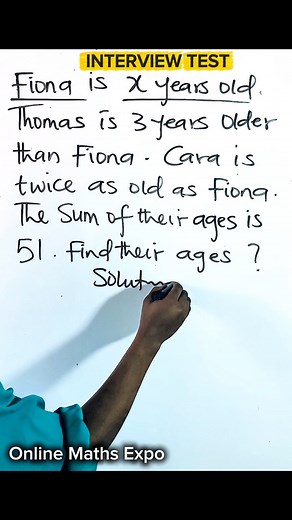 INTERVIEW TEST
Fiona is x years old.
Thomas is 3 years older
than Fiona. Cara is
twice as old as Fiona.
The Sum of their ages is
51. Find their ages ?
Solut
Online Maths Expo